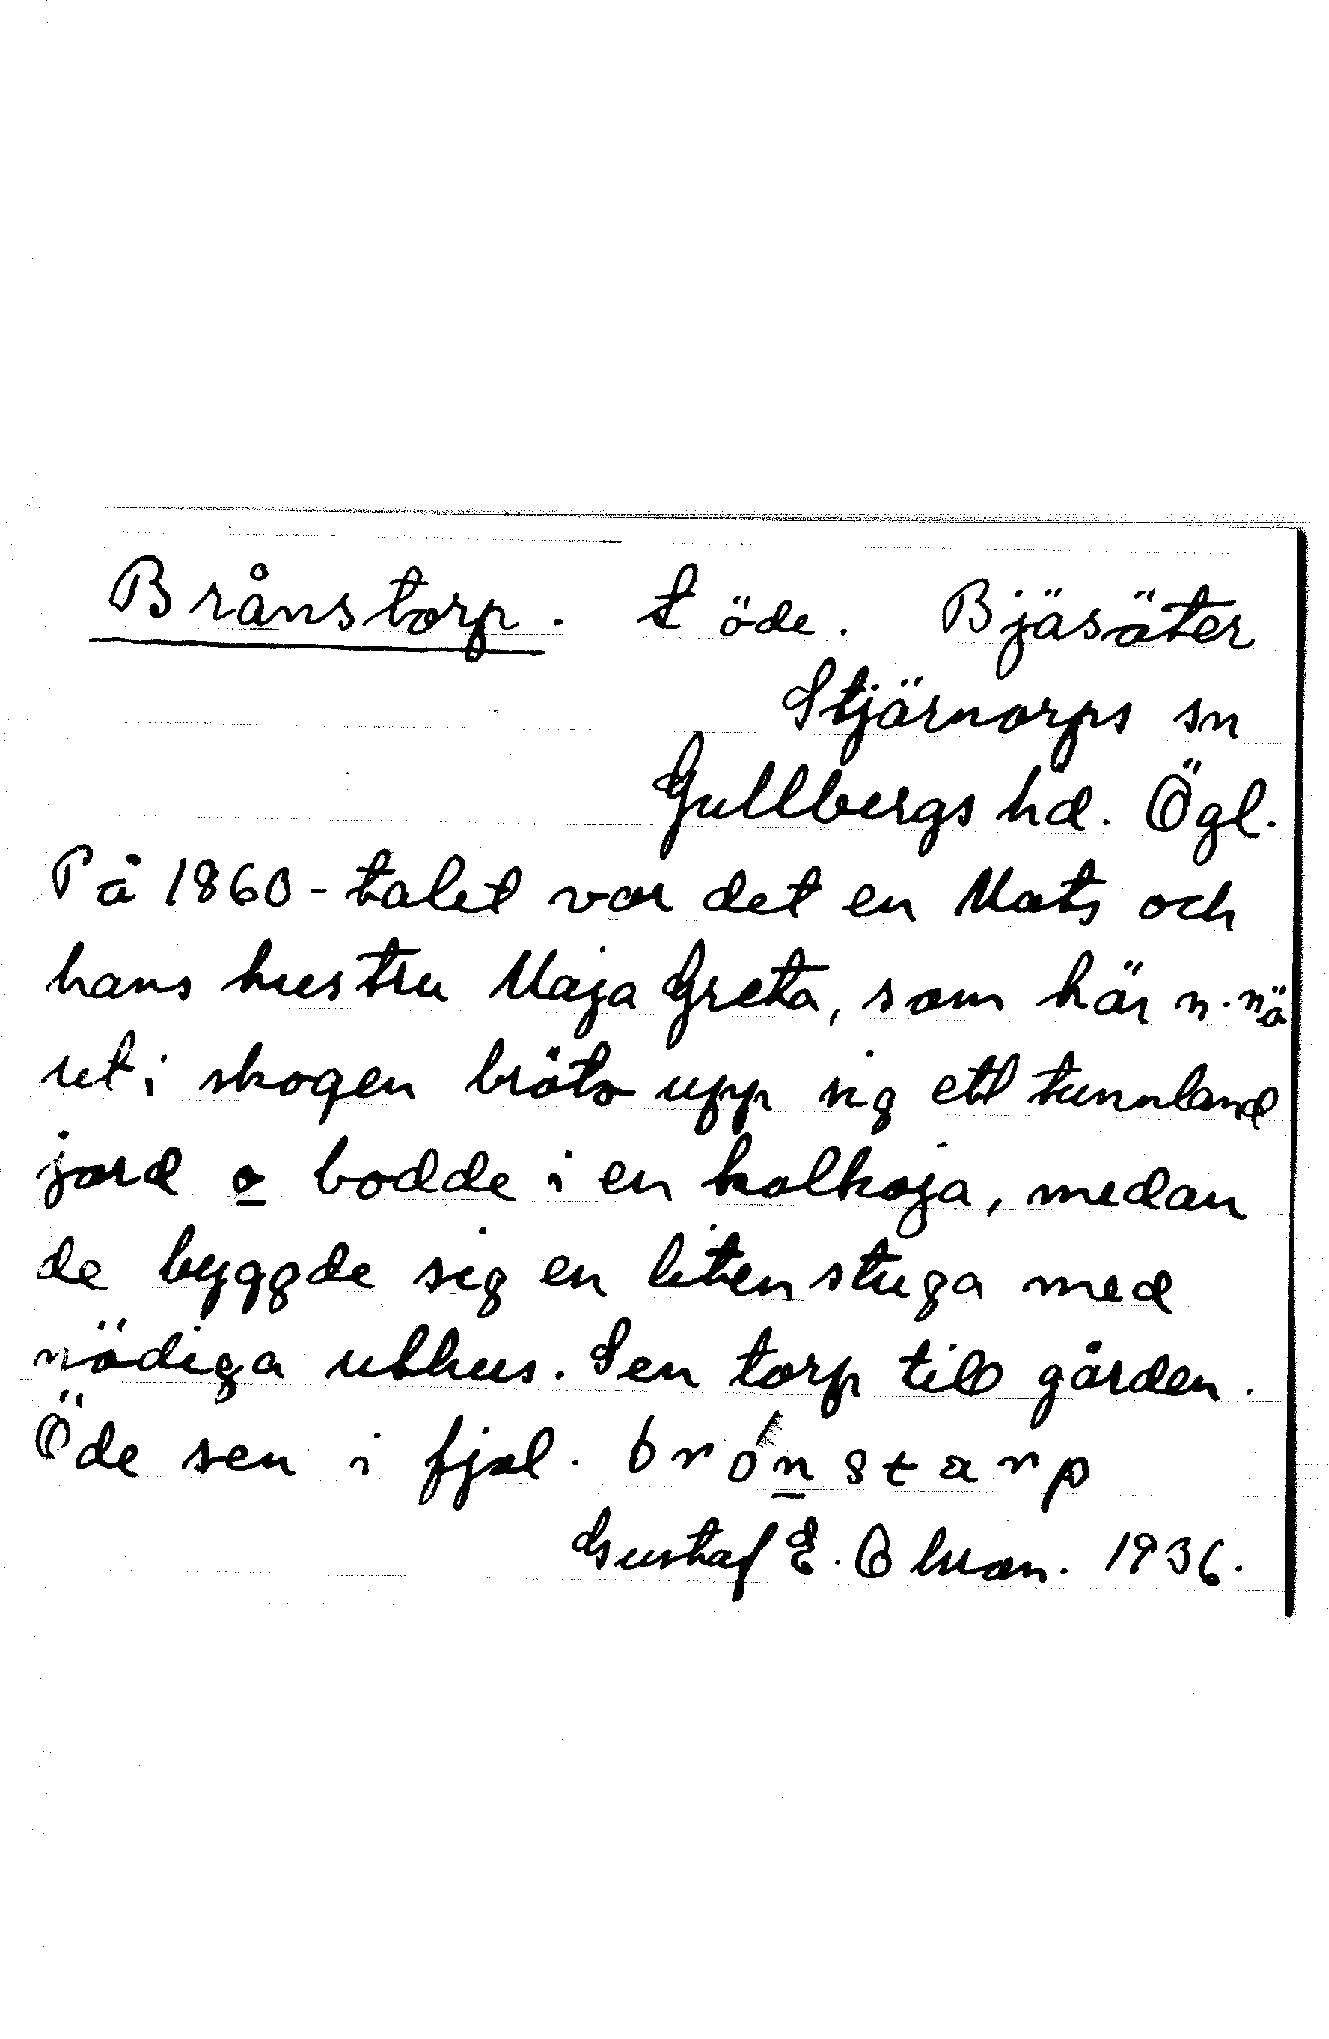 Brånstorp. t öde. Bjäsäter
Stjärnorps sn
Gullbergs hd. Ögl.
På 1860-talet var det en Mats och
hans hustru Maja Greta, som här n.nä
ret i skogen bröto upp sig ett tunnland
jord o bodde i en kolkoja, medan
de byggde sig en liten stuga med
nödiga uthus. Sen torp till gården.
Öde sen i fjol. brónstarp
Gustaf E. 1936.